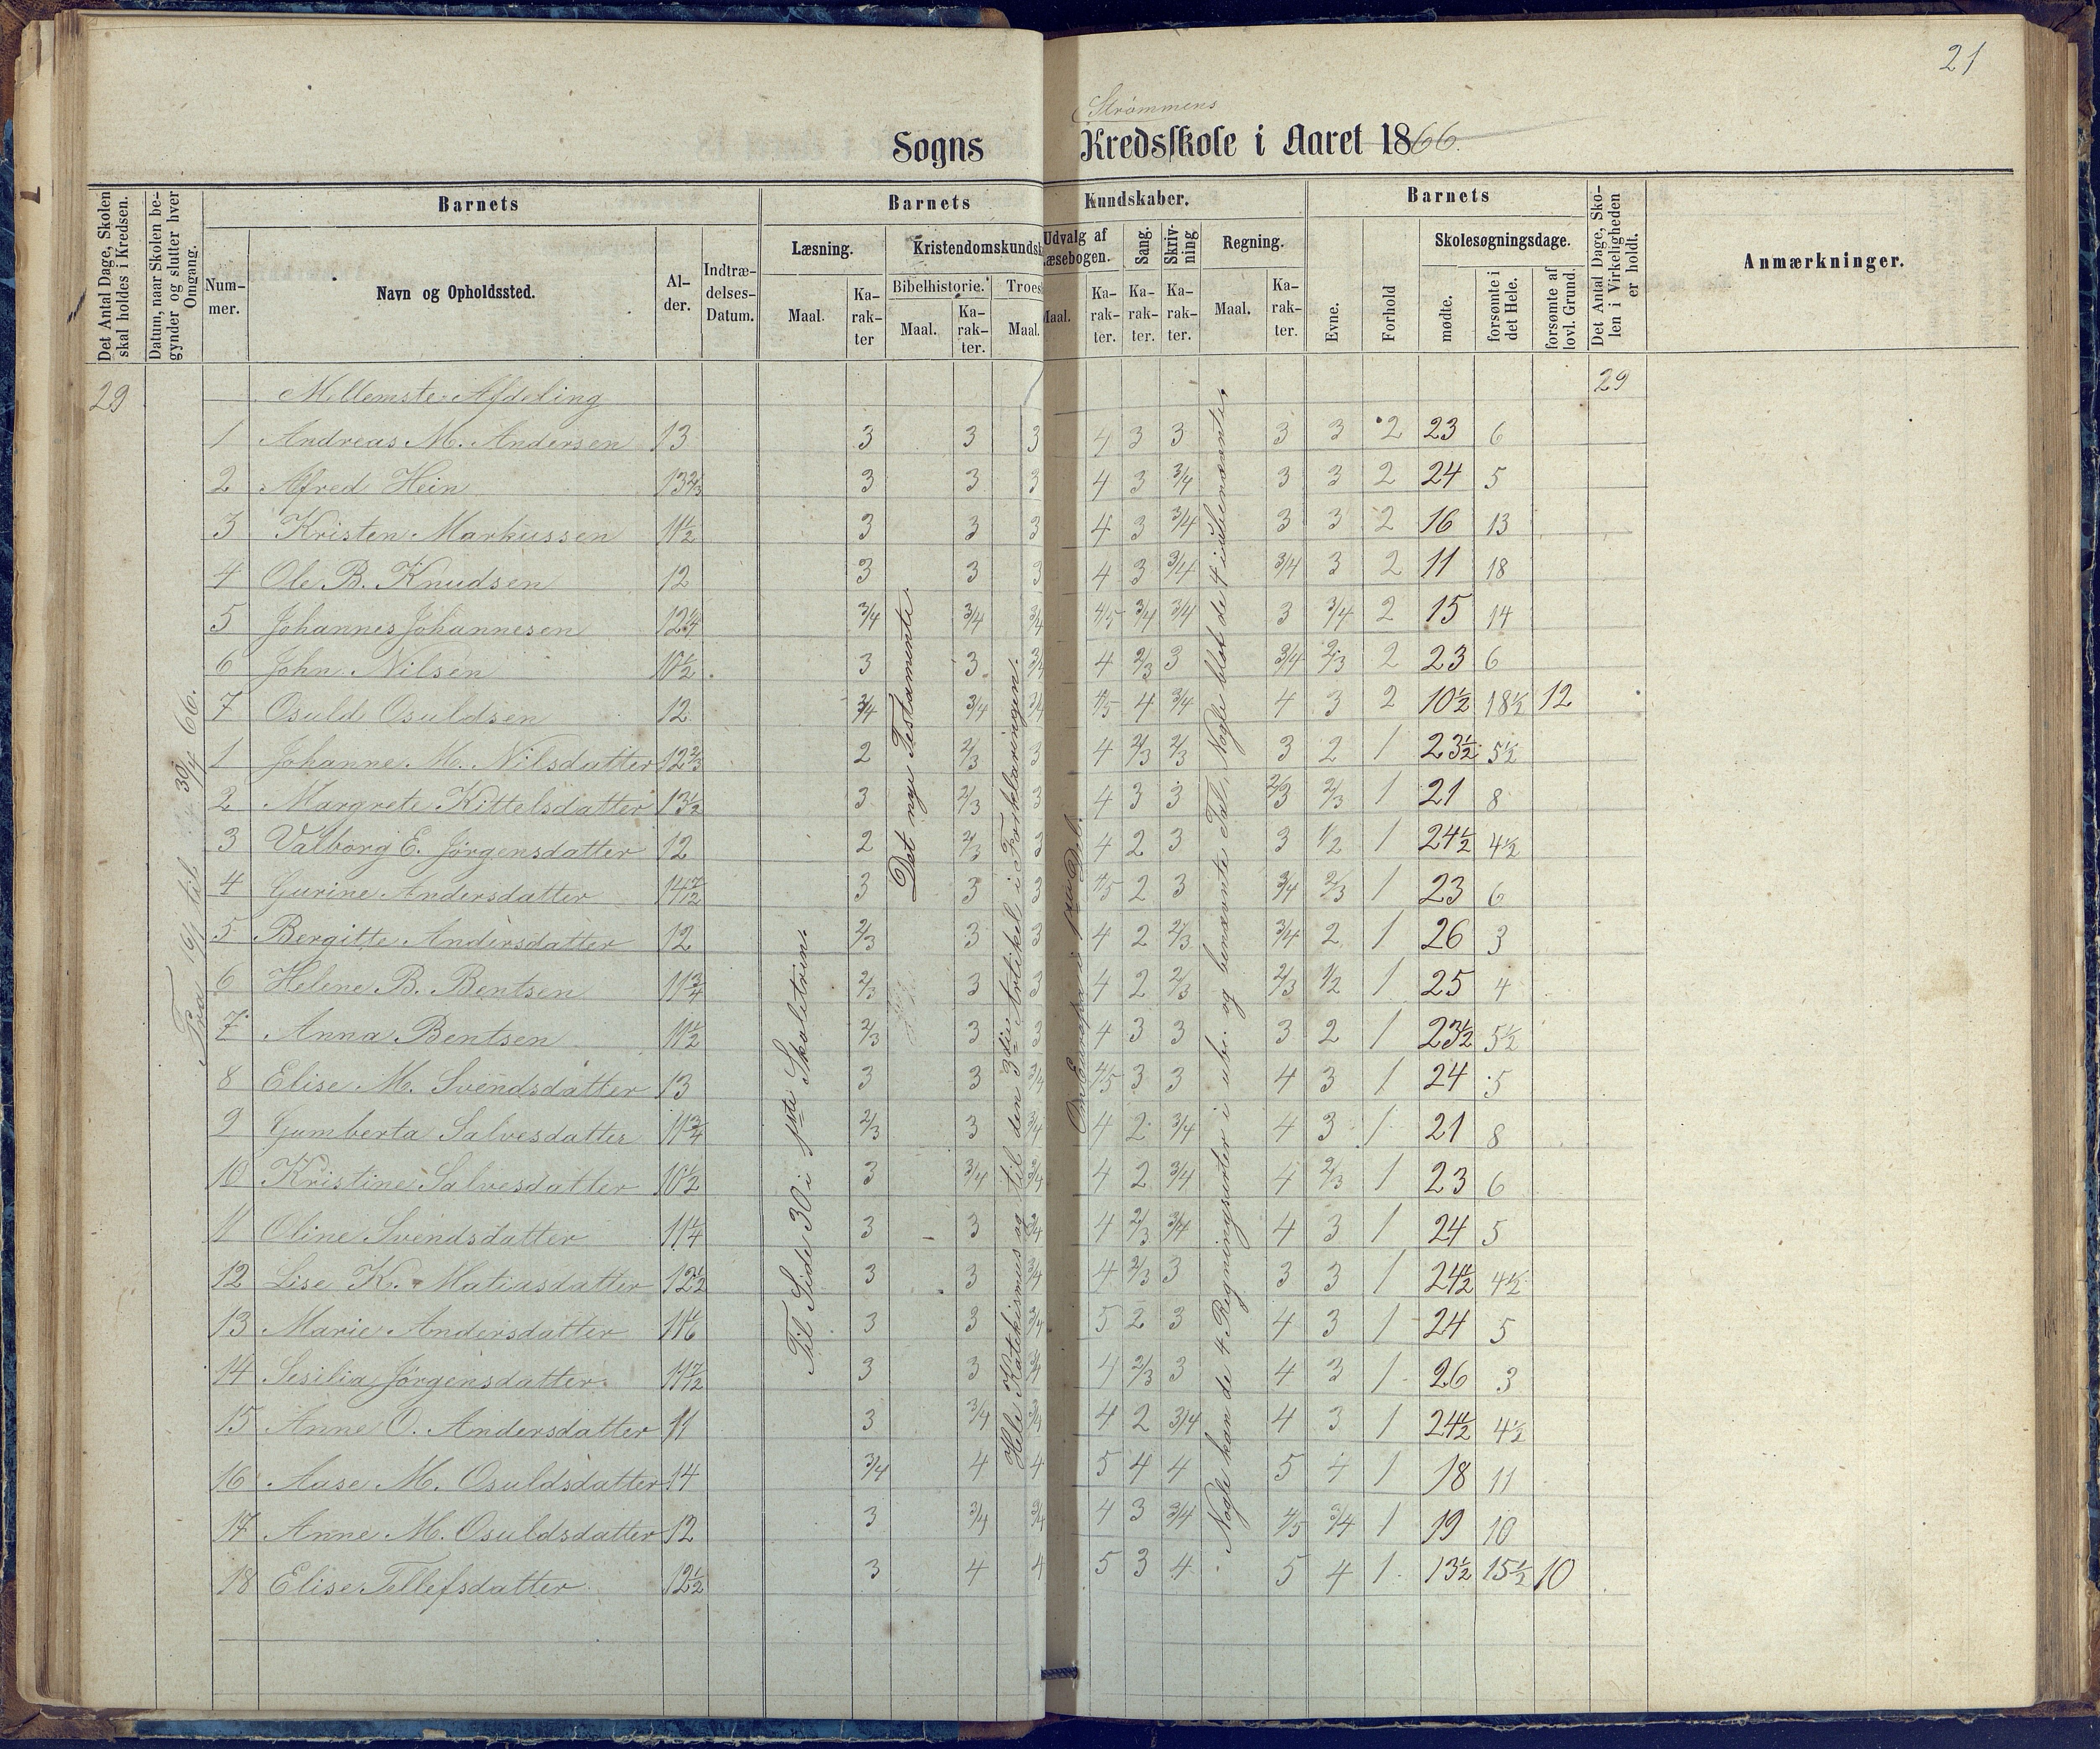 21
Strømmens
Sogns Kredsskole i Aaret 1866.
Det Antal Dage, Skolen skal holdes i Kredsen.
Datum, naar Skolen begynder og slutter hver Omgang.
Barnets
Nummer.
Navn og Opholdssted.
Alder.
Indtrædelses-Datum.
Barnets Kundskaber.
Læsning.
Maal.
Karakter
Kristendomskundsk
Bibelhistorie.
Maal.
Karakter.
Troes
Maal.
Udvalg af Læsebogen.
Maal.
Karakter.
Sang.
Karakter.
Skrivning
Karakter.
Regning.
Maal.
Karakter.
Barnets
Evne.
Forhold
Skolesøgningsdage.
mødte.
forsømte i det Hele.
forsømte af lovl. Grund.
Det Antal Dage, Skolen i Virkeligheden er holdt.
Anmærkninger.
29 Mellemste Afdeling 29
1 Andreas M. Andersen 13 3 3 3 4 3 3 3 3 2 23 6
2 Alfred Hein 13 2/3 3 3 3 4 3 3/4 3 3 2 24 5
3 Kristen Markussen 11 1/2 3 3 3 4 3 3/4 3 3 2 16 13
4 Ole B. Knudsen 12 3 3 3 4 3 3/4 3/4 3 2 11 18
5 Johannes Johannesen 12 1/4 3/4 3/4 3/4 4/5 3/4 3/4 3 3/4 2 15 14
6 John Nilsen 10 1/2 3 3 3/4 4 2/3 3 3/4 2/3 2 23 6
7 Osuld Osuldsen 12 3/4 3/4 3/4 4/5 4 3/4 4 3 2 10 1/2 18 1/2 12
1 Johanne M. Nilsdatter 12 2/3 2 2/3 3 4 2/3 2/3 3 2 1 23 1/2 5 1/2
2 Margrete Kittelsdatter 13 1/2 3 2/3 3 4 3 3 2/3 2/3 1 21 8
3 Valborg E. Jørgensdatter 12 2 2/3 3 4 2 3 3 1/2 1 24 1/2 4 1/2
4 Gurine Andersdatter 14 7/12 3 3 3 4/5 2 3 3/4 2/3 1 23 6
5 Bergitte Andersdatter 12 2/3 3 3 4 2 2/3 3/4 2 1 26 3
6 Helene B. Bentsen 11 3/4 2/3 3 3 4 2 2/3 2/3 1/2 1 25 4
7 Anna Bentsen 11 1/2 2/3 3 3 4 3 3 3 2 1 23 1/2 5 1/2
8 Elise M. Svendsdatter 13 3 3 3/4 4/5 3 3 4 3 1 24 5
9 Gumberta Salvesdatter 11 3/4 2/3 3 3/4 4 2 3/4 4 3 1 21 8
10 Kristine Salvesdatter 10 1/2 3 3/4 3/4 4 2 3/4 4 2/3 1 23 6
11 Oline Svendsdatter 11 1/4 3 3 3/4 4 2/3 3/4 4 3 1 24 5
12 Lise K. Matiasdatter 12 1/2 3 3 3/4 4 2/3 3 3 3 1 24 1/2 4 1/2
13 Marie Andersdatter 11 1/6 3 3 3/4 5 2 3 4 3 1 24 5
14 Sesilia Jørgensdatter 11 7/12 3 3 3/4 4 2/3 3 4 3 1 26 3
15 Anne O. Andersdatter 11 3 3/4 3/4 4 2 3/4 4 3 1 24 1/2 4 1/2
16 Aase M. Osuldsdatter 14 3/4 4 4 5 4 4 5 4 1 18 11
17 Anne M. Osuldsdatter 12 3 3/4 3/4 4 3 3/4 4/5 3/4 1 19 10
18 Elise Tellefsdatter 12 1/2 3 4 4 5 3 4 5 4 1 13 1/2 15 1/2 10
Fra 16/1 til 30/4 66.
Til Side 30 i 1ste Skoletrin.
Det nye Testamente.
Hele Katekismus og til den 3die Artikel i Forklaringen.
Om Europa
Nogle kan de 4 Regningsarter i ube. og benævnte Tal, Nogle blot de 4 i ubenævnte.